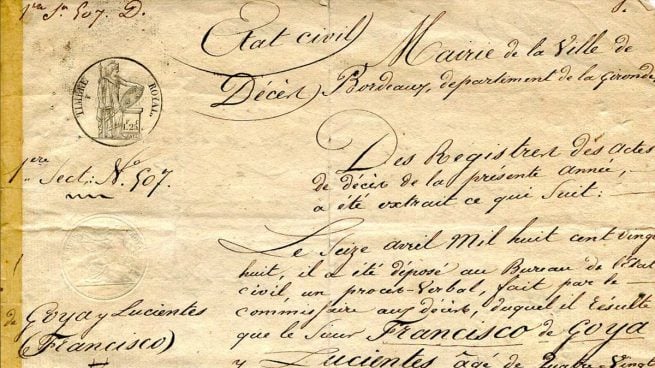 1re Son 507. D.
Etat civil
Décès
Mairie de la Ville de
Bordeaux, département de la Gironde,
TIMBRE ROYAL
1ere Sect: No 507.
Des Registres des actes
de décès de la présente année,
a été extrait ce qui suit:
Le Seize avril Mil huit cent vingt
huit, il a été déposé au Bureau de l'Etat
civil, un procès-Verbal, fait par le
commissaire aux décès, duquel il résulte
que le Sieur Francisco de Goya
y Lucientes âgé de Quatre-Vingt
de Goya y Lucientes
(Francisco)